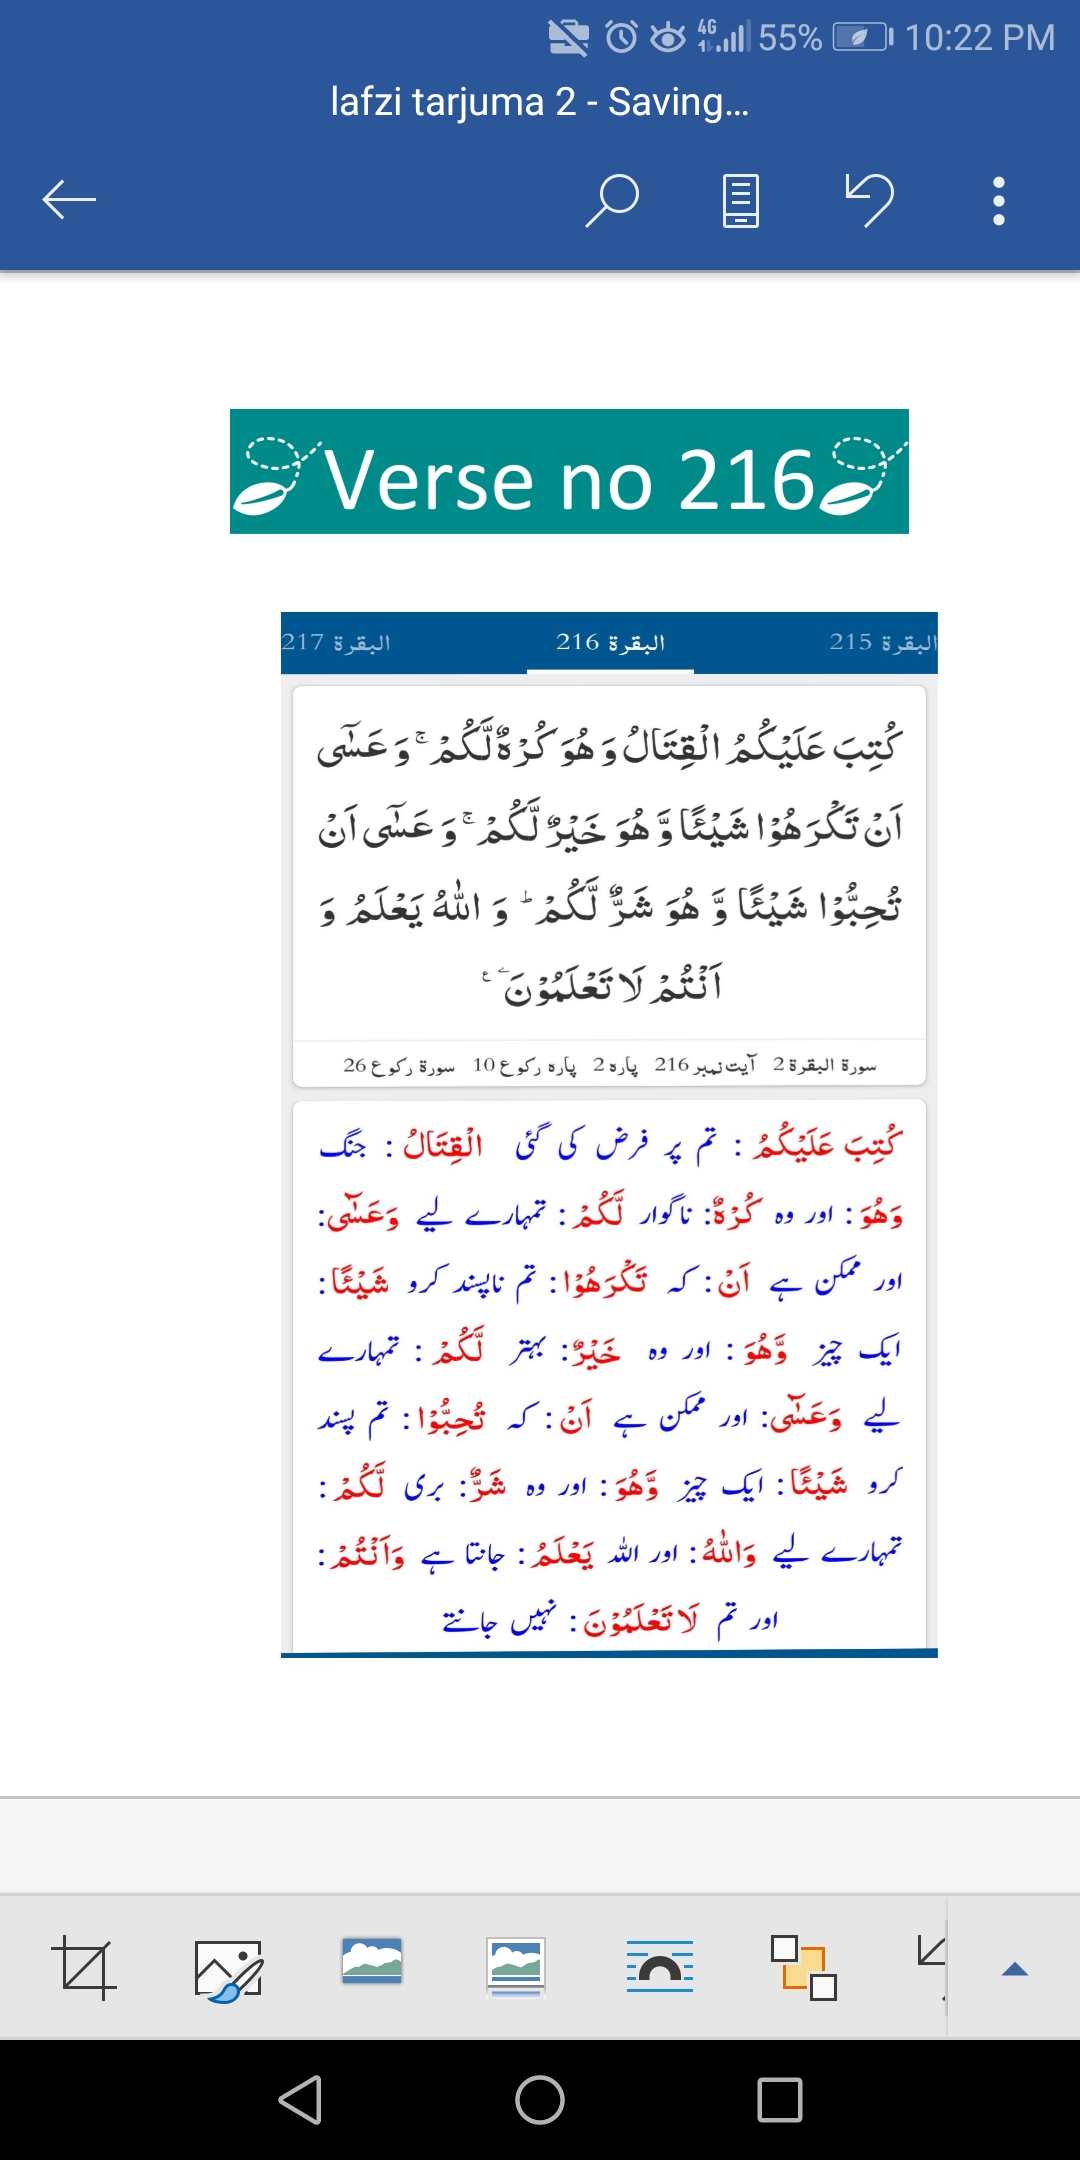 55% 10:22 PM
lafzi tarjuma 2 - Saving...
Verse no 216
البقرة 215 البقرة 216 البقرة 217
كُتِبَ عَلَيْكُمُ الْقِتَالُ وَ هُوَ كُرْهٌ لَّكُمْ ۚ وَ عَسٰۤى
اَنْ تَكْرَهُوْا شَيْـًٔا وَّ هُوَ خَيْرٌ لَّكُمْ ۚ وَ عَسٰۤى اَنْ
تُحِبُّوْا شَيْـًٔا وَّ هُوَ شَرٌّ لَّكُمْ ؕ وَ اللّٰهُ يَعْلَمُ وَ
اَنْتُمْ لَا تَعْلَمُوْنَ ۧ
سورۃ البقرۃ 2 آیت نمبر 216 پارہ 2 پارہ رکوع 10 سورۃ رکوع 26
كُتِبَ عَلَيْكُمُ : تم پر فرض کی گئی الْقِتَالُ : جنگ
وَهُوَ : اور وہ كُرْهٌ: ناگوار لَّكُمْ : تمہارے لیے وَعَسٰۤى:
اور ممکن ہے اَنْ : کہ تَكْرَهُوْا : تم ناپسند کرو شَيْـًٔا :
ایک چیز وَّهُوَ : اور وہ خَيْرٌ: بہتر لَّكُمْ : تمہارے
لیے وَعَسٰۤى: اور ممکن ہے اَنْ : کہ تُحِبُّوْا : تم پسند
کرو شَيْـًٔا : ایک چیز وَّهُوَ : اور وہ شَرٌّ: بری لَّكُمْ :
تمہارے لیے وَاللّٰهُ : اور اللہ يَعْلَمُ : جانتا ہے وَاَنْتُمْ :
اور تم لَا تَعْلَمُوْنَ : نہیں جانتے